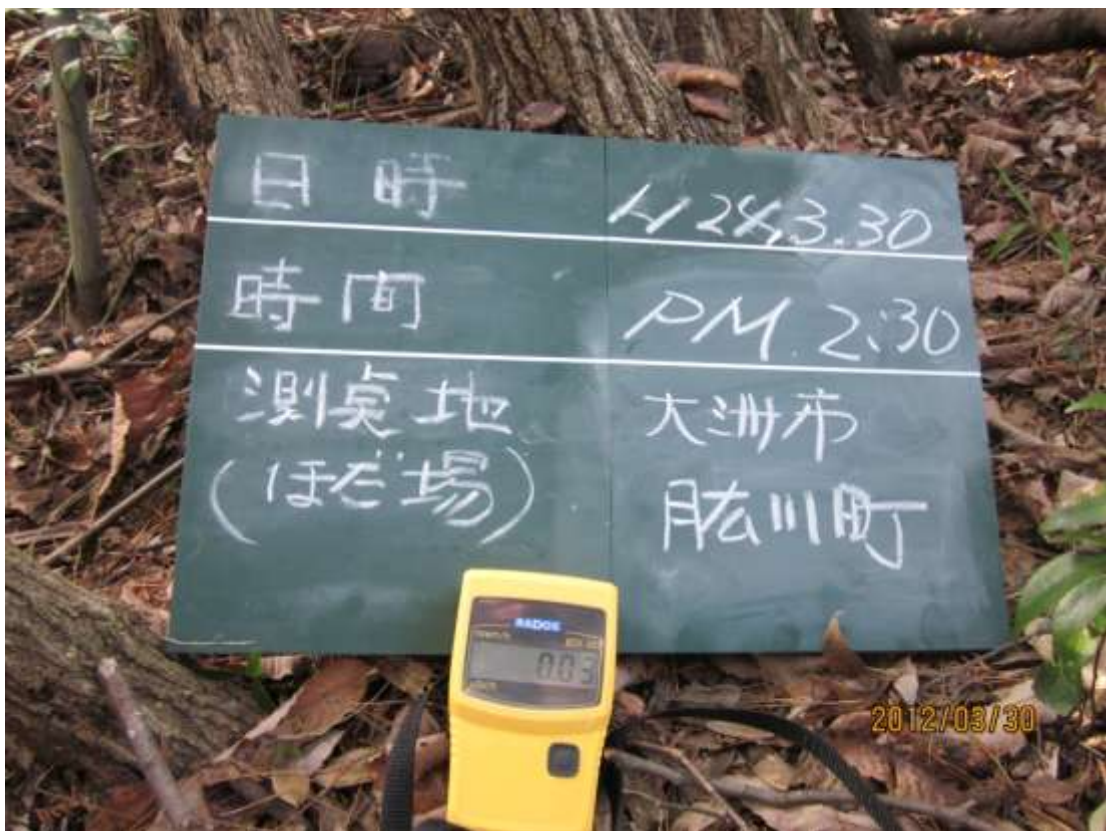 日時 H24.3.30
時間 PM.2:30
測定地 大洲市
(ほだ場) 肱川町
RADOS
0.03
2012/03/30